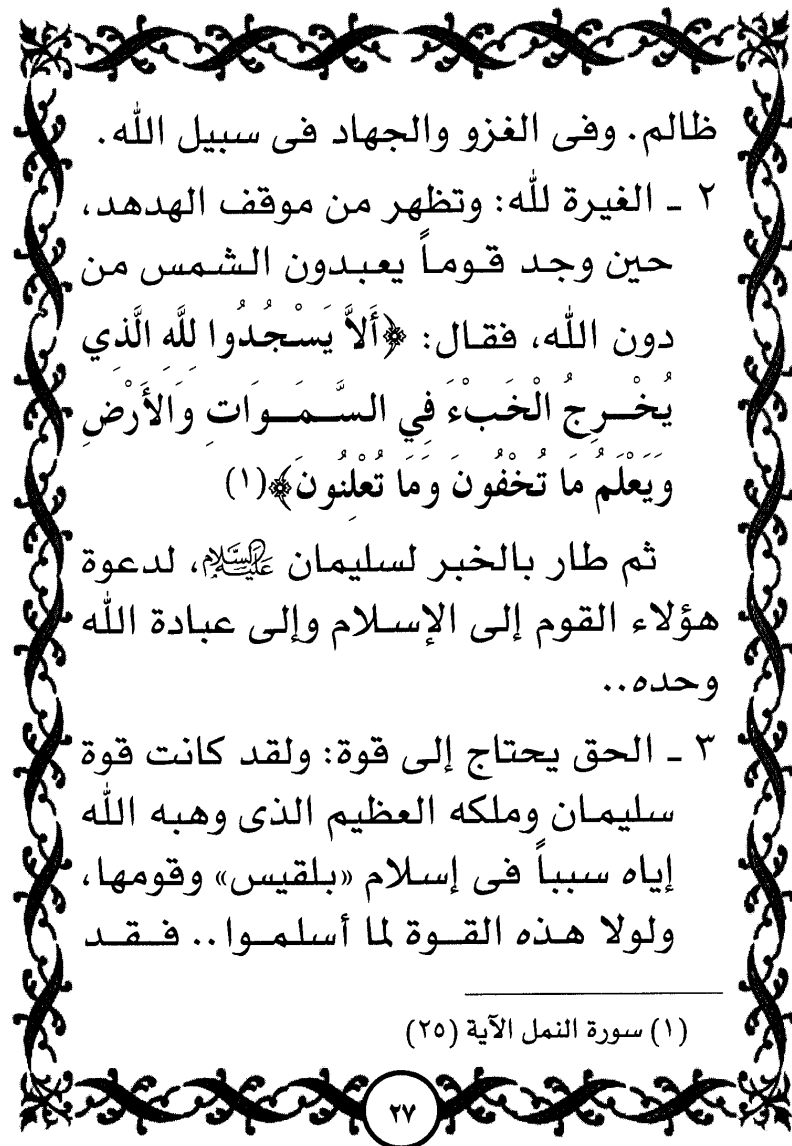 ظالم. وفى الغزو والجهاد فى سبيل الله.
٢ ـ الغيرة لله: وتظهر من موقف الهدهد،
حين وجد قوماً يعبدون الشمس من
دون الله، فقال: ﴿أَلاَّ يَسْجُدُوا لِلَّهِ الَّذِي
يُخْرِجُ الْخَبْءَ فِي السَّمَوَاتِ وَالأَرْضِ
وَيَعْلَمُ مَا تُخْفُونَ وَمَا تُعْلِنُونَ﴾(١)
ثم طار بالخبر لسليمان عَلَيْهِ السَّلَام، لدعوة
هؤلاء القوم إلى الإسلام وإلى عبادة الله
وحده..
٣ ـ الحق يحتاج إلى قوة: ولقد كانت قوة
سليمان وملكه العظيم الذى وهبه الله
إياه سبباً فى إسلام «بلقيس» وقومها،
ولولا هذه القوة لما أسلموا.. فقد
(١) سورة النمل الآية (٢٥)
٢٧